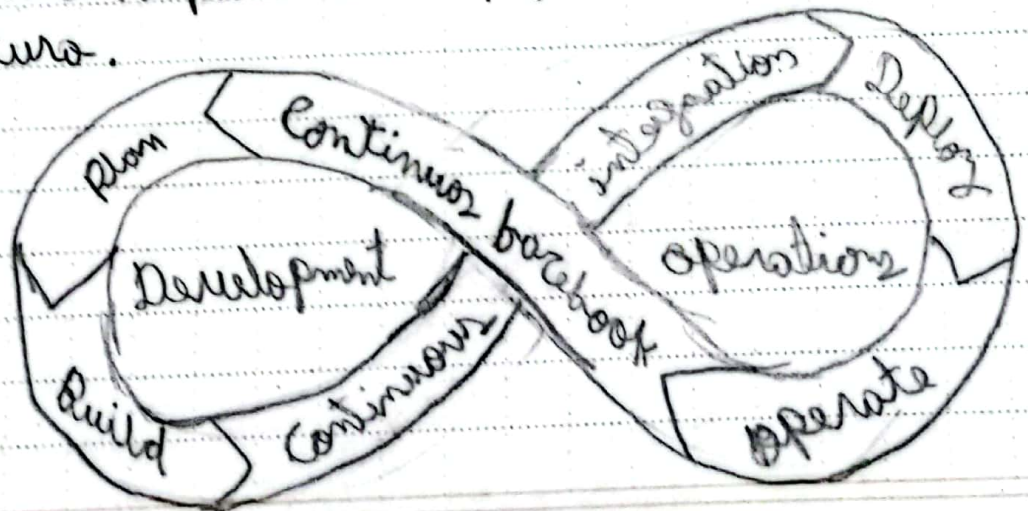 uro.
Plan
Continuos
bacebook
integration
Deploy
Development
operations
Build
Continuous
operate